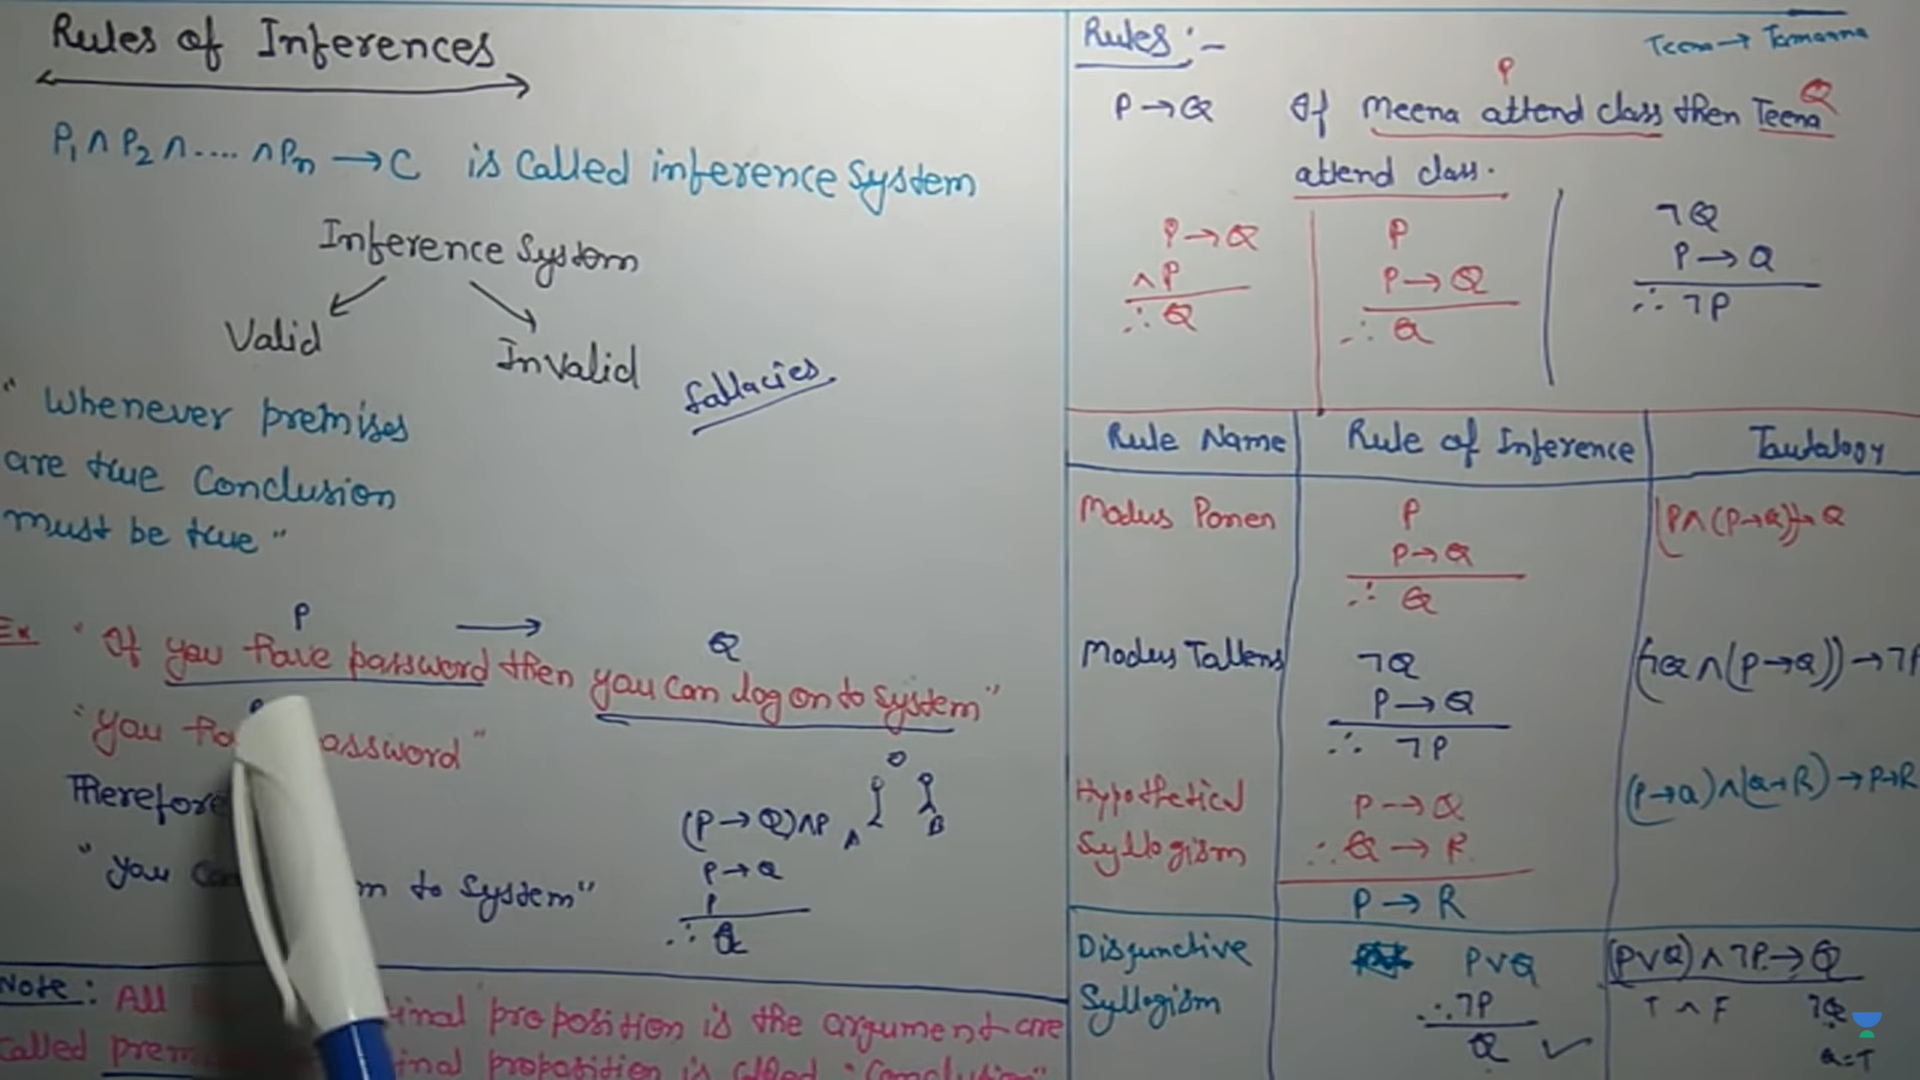 Rules of Inferences
P₁ ∧ P₂ ∧ .... ∧ Pₙ → C is called inference System
Inference System
Valid
Invalid
fallacies
" Whenever premises
are true Conclusion
must be true "
P → Q
Ex " If you have password then you can log on to system "
P
" you password "
Therefore
" you to System "
(P → Q) ∧ P
A B
P → Q
P
∴ Q
Note : All proposition is the argument are
called proposition is called "Conclusion"
Rules :-
Teena → Tamanna
P Q
P → Q If Meena attend class then Teena
attend class.
P → Q
∧ P
∴ Q
P
P → Q
∴ Q
¬Q
P → Q
∴ ¬P
Rule Name Rule of Inference Tautalogy
Modus Ponen
P
P → Q
∴ Q
(P ∧ (P → Q)) → Q
Modus Tallens
¬Q
P → Q
∴ ¬P
(¬Q ∧ (P → Q)) → ¬P
Hypothetical
Syllogism
P → Q
∴ Q → R
P → R
(P → Q) ∧ (Q → R) → P → R
Disjunctive
Syllogism
P ∨ Q
∴ ¬P
Q ✓
(P ∨ Q) ∧ ¬P → Q
T ∧ F ¬Q
Q = T